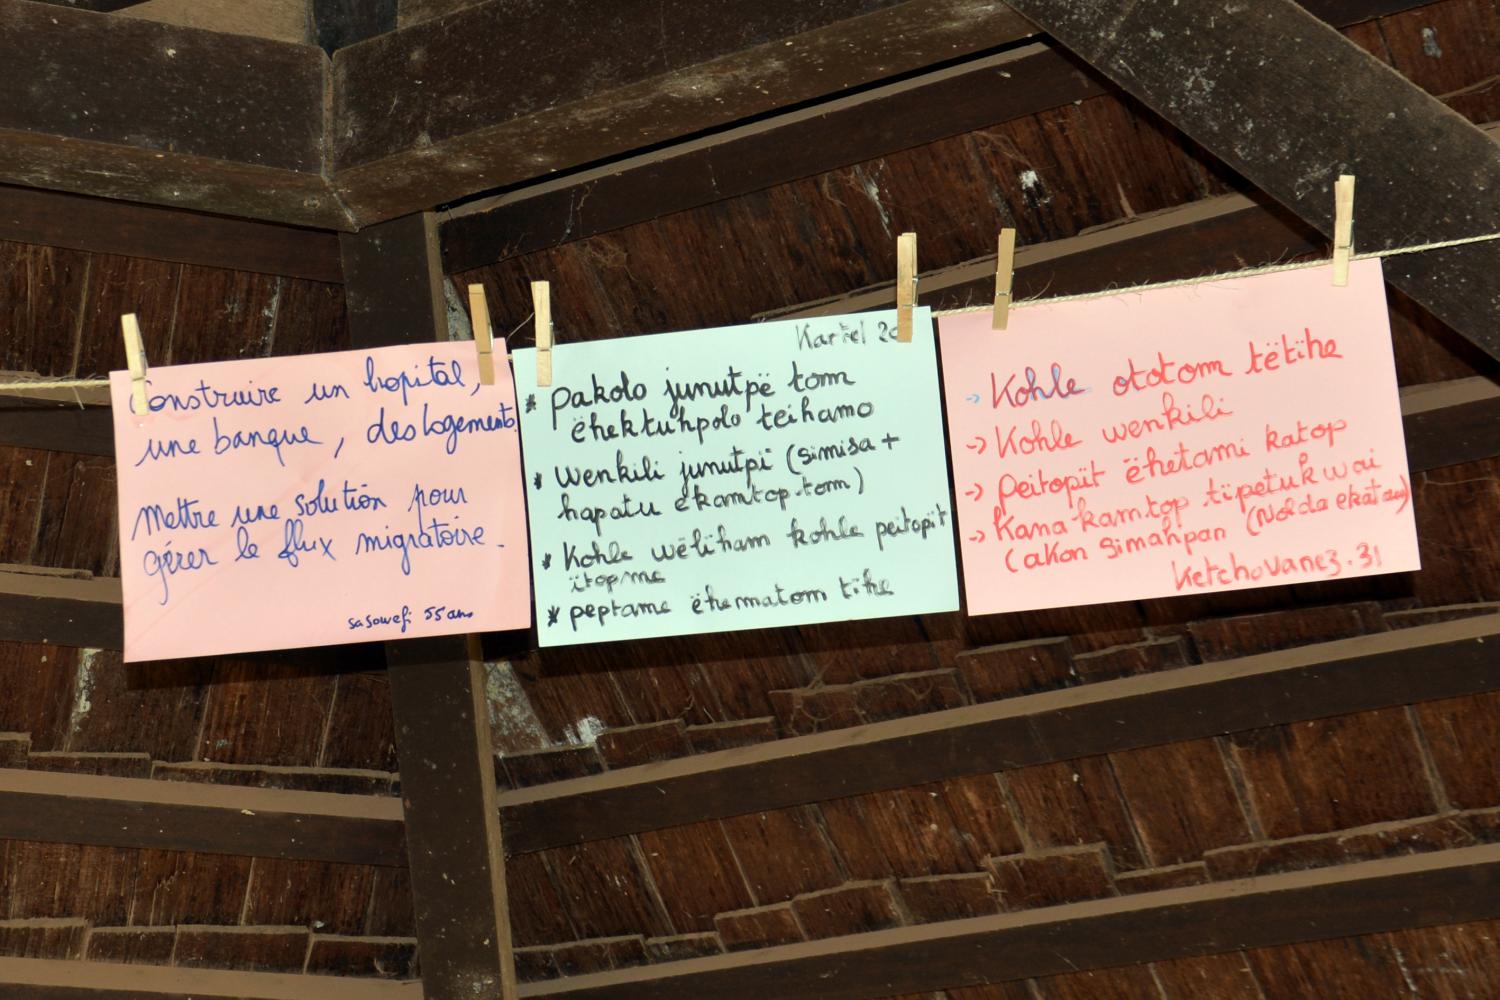 Construire un hopital,
une banque, des logements.
Mettre une solution pour
gérer le flux migratoire.
sasowefi 55 ans
Kartel 20
* pakolo junutpë tom
ëhektuhpolo teihamo
* wenkili junutpï (simisa +
hapatu ekamtop tom)
* Kohle wëliham kohle peitopït
ïtopme
* peptame ëhematom tïhe
-> Kohle ototom tëtïhe
-> Kohle wenkili
-> peitopït ëhetami katop
-> Kana kamtop tïpetukwai
(akon simahpan (Nolda ekatau)
Ketchovanez.31